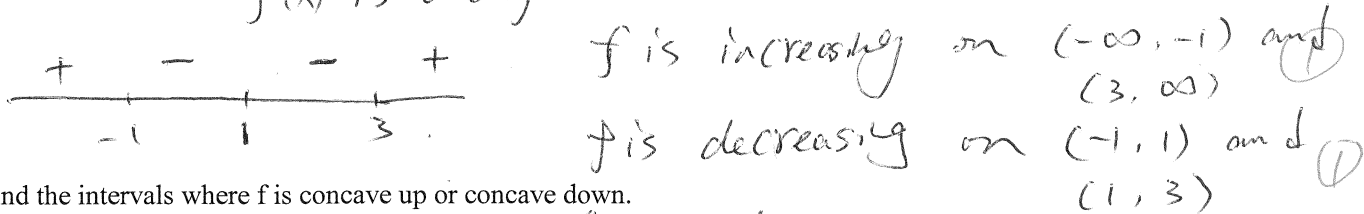 + − − +
-1 1 3
f is increasing on (-∞, -1) and ①
(3, ∞)
f is decreasing on (-1, 1) and ①
(1, 3)
nd the intervals where f is concave up or concave down.